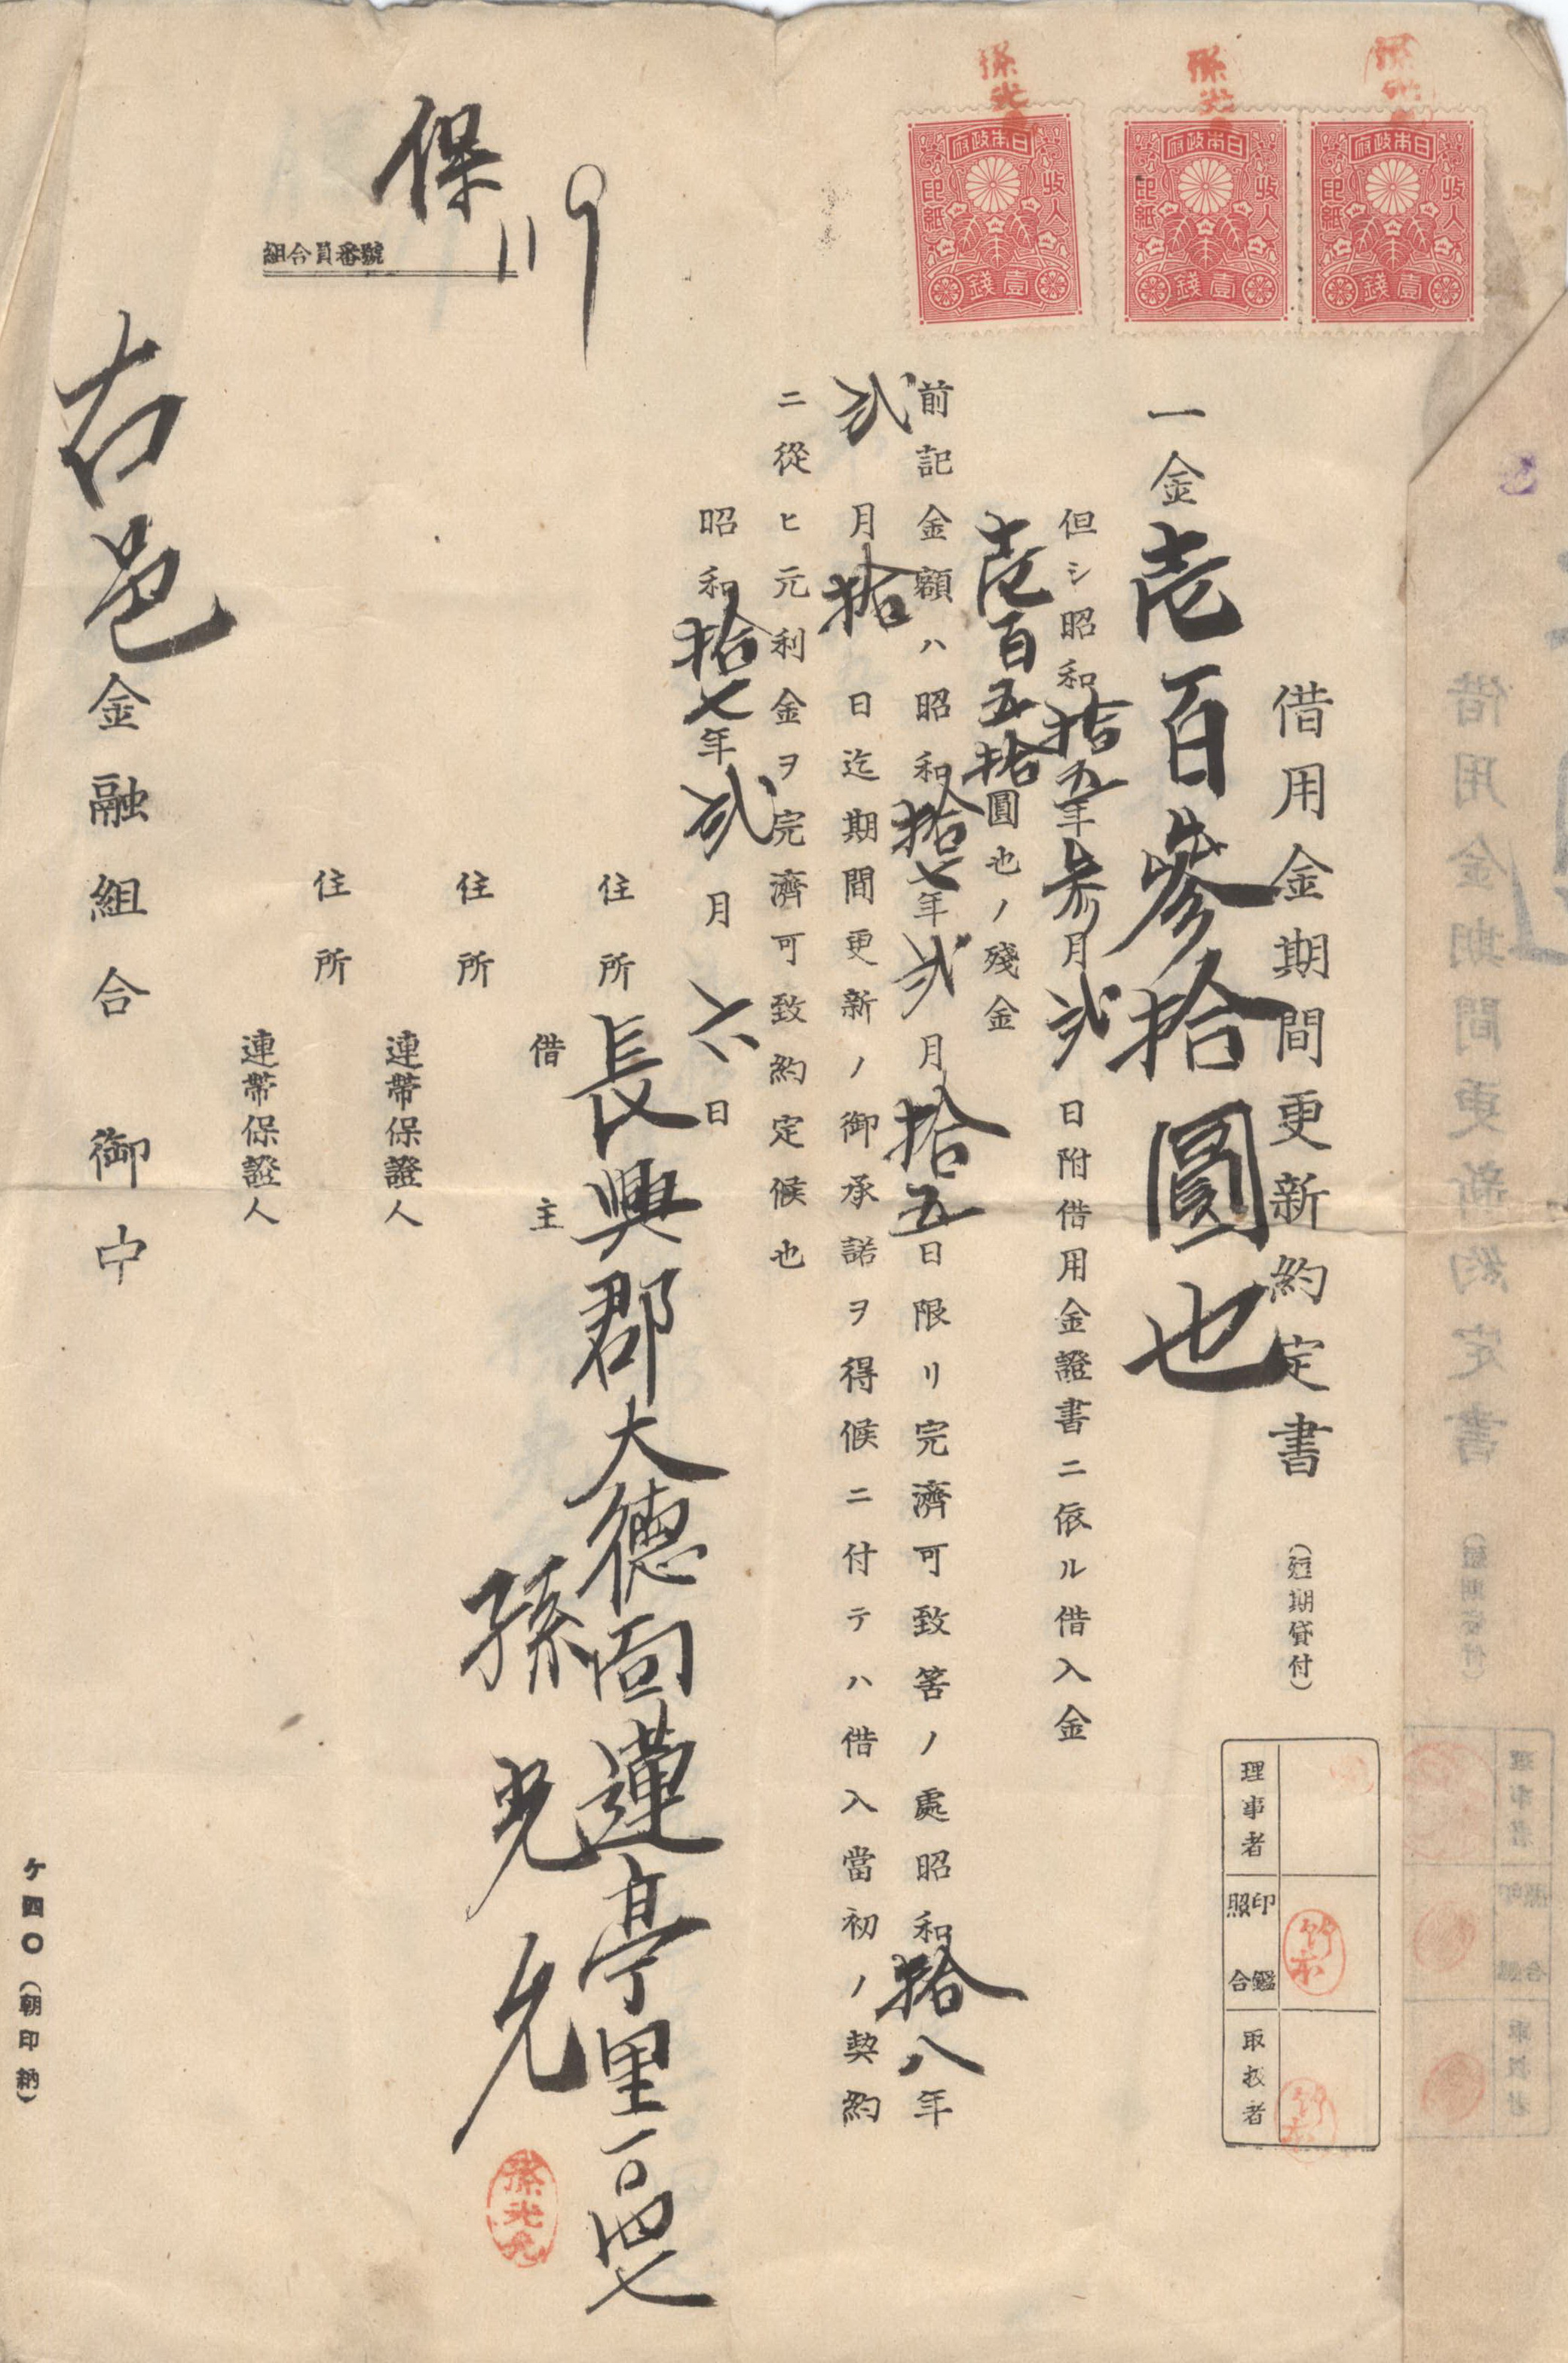 借用金期間更新約定書 (短期貸付)
理事者
印鑑照合
取扱者
竹本
竹本
一金壱百參拾圓也
但シ昭和拾五年参月弐日附借用金證書ニ依ル借入金
壱百五拾圓也ノ殘金
前記金額ハ昭和拾七年弐月拾五日限リ完濟可致筈ノ處昭和拾八年
弐月拾日迄期間更新ノ御承諾ヲ得候ニ付テハ借入當初ノ契約
ニ從ヒ元利金ヲ完濟可致約定候也
昭和拾七年弐月六日
住所 長興郡大德面蓮亭里一四七
借主 孫光允
孫光允
住所
連帶保證人
住所
連帶保證人
古邑金融組合 御中
組合員番號
保119
日本政府
收入印紙
壹錢
日本政府
收入印紙
壹錢
日本政府
收入印紙
壹錢
孫光
孫光
ケ四〇(朝印納)
借用金期間更新約定書